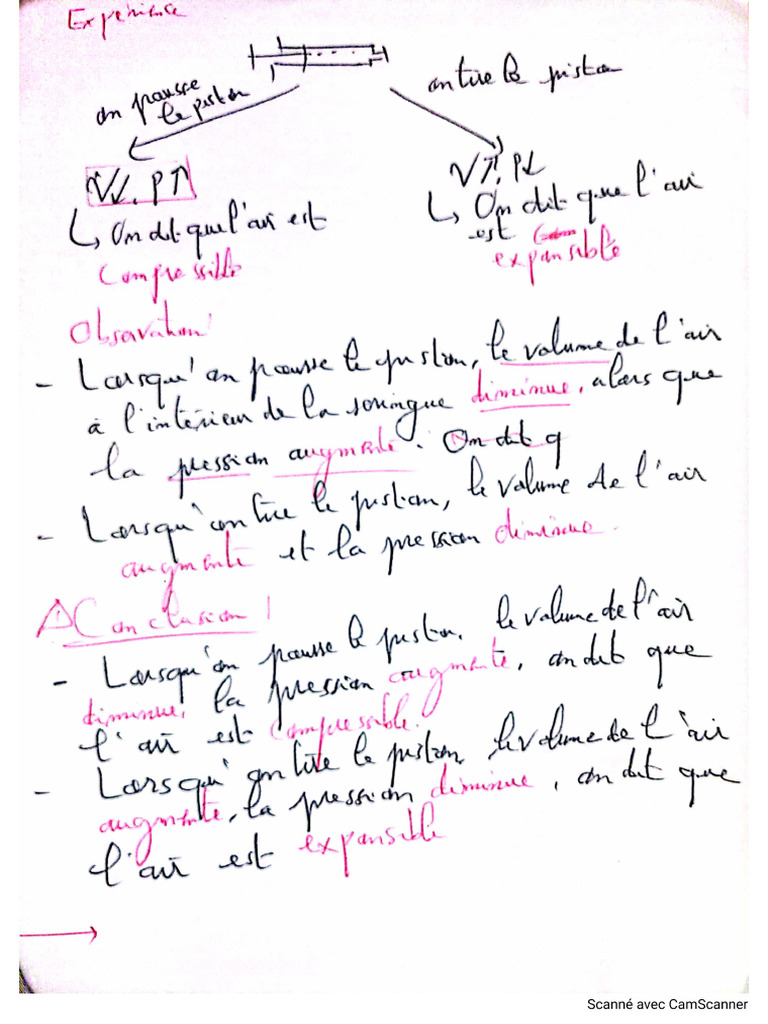 Expérience
on pousse
le piston
on tire le piston
V↓, P↑
V↑, P↓
↳ On dit que l'air est
compressible
↳ On dit que l'air
est
expansible
Observation
- Lorsqu'on pousse le piston, le volume de l'air
à l'intérieur de la seringue diminue, alors que
la pression augmente. On dit q
- Lorsqu'on tire le piston, le volume de l'air
augmente et la pression diminue.
Conclusion
- Lorsqu'on pousse le piston, le volume de l'air
diminue, la pression augmente, on dit que
l'air est compressible.
- Lorsqu'on tire le piston, le volume de l'air
augmente, la pression diminue, on dit que
l'air est expansible
Scanné avec CamScanner